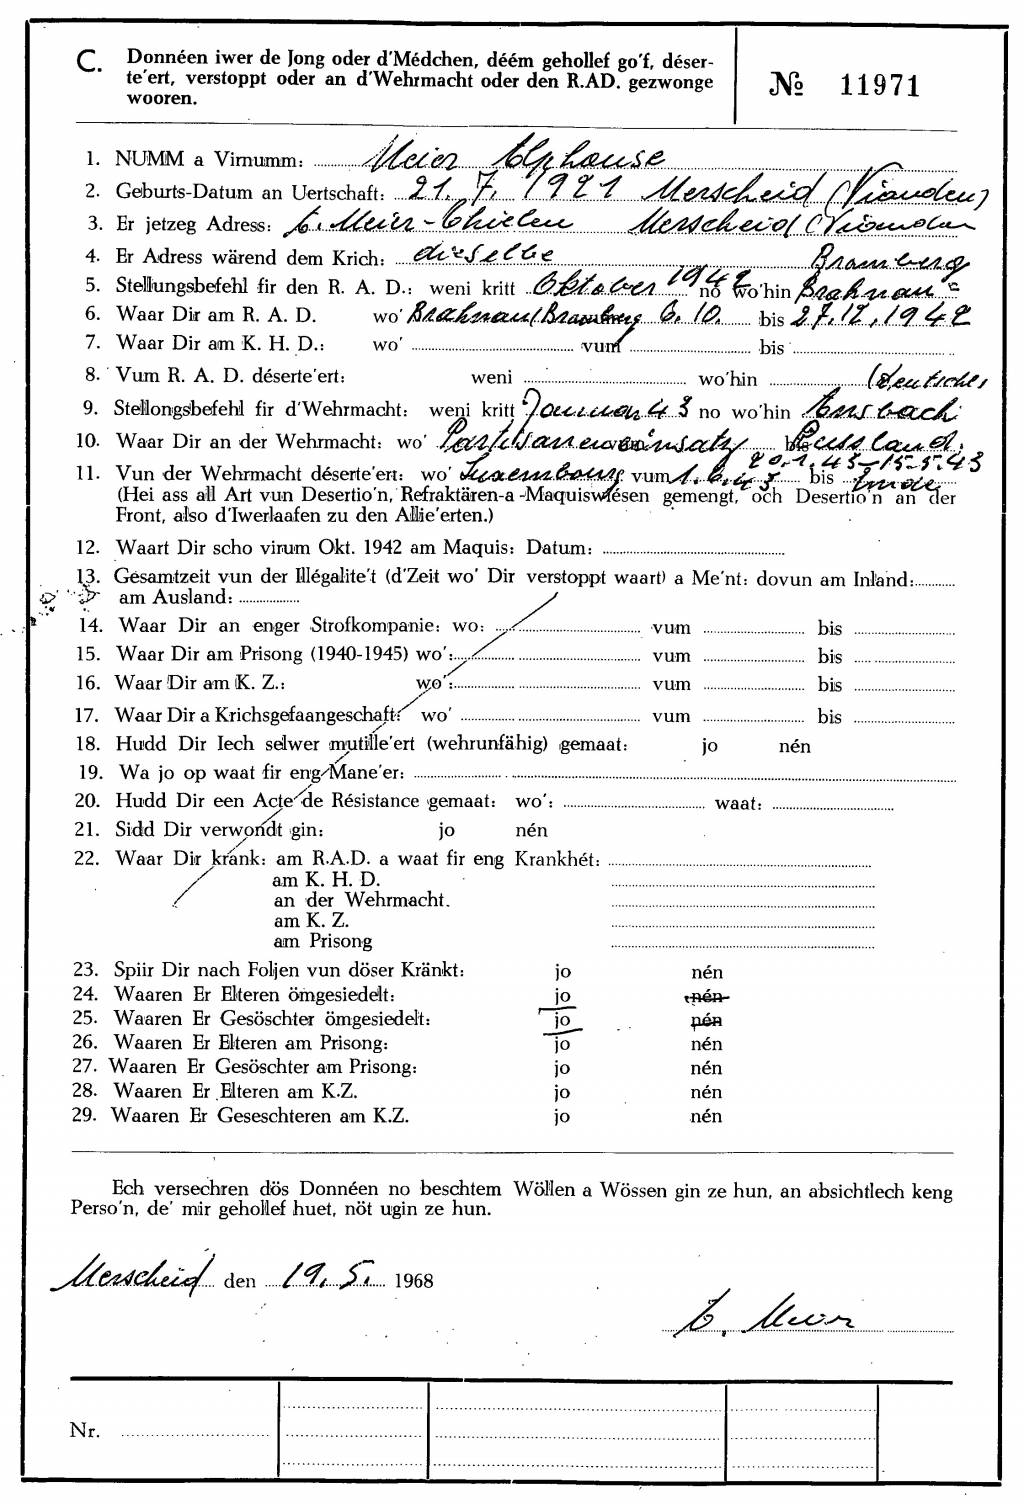 C. Donnéen iwer de Jong oder d'Médchen, déém gehollef go'f, déser-
te'ert, verstoppt oder an d'Wehrmacht oder den R.AD. gezwonge
wooren.
№ 11971
1. NUMM a Virnumm: Meier Alphonse
2. Geburts-Datum an Uertschaft: 21. 7. 1921 Merscheid (Vianden)
3. Er jetzeg Adress: Meier-Thielen Merscheid (Vianden
4. Er Adress wärend dem Krich: dieselbe
Bramberg
5. Stellungsbefehl fir den R. A. D.: weni kritt Oktober 1942 no wo'hin Brahnau =
6. Waar Dir am R. A. D. wo' Brahnau/Bramberg 6. 10. bis 27. 12. 1942
7. Waar Dir am K. H. D.: wo' vum bis
8. Vum R. A. D. déserte'ert: weni wo'hin (Deutschl
9. Stellongsbefehl fir d'Wehrmacht: weni kritt Januar 43 no wo'hin Ansbach
10. Waar Dir an der Wehrmacht: wo' Partisaneneinsatz bis Russland.
20.1.43-15.5.43
11. Vun der Wehrmacht déserte'ert: wo' Luxembourg vum 1.6.43 bis Ende
(Hei ass all Art vun Desertio'n, Refraktären-a-Maquiswiésen gemengt, och Desertio'n an der
Front, also d'Iwerlaafen zu den Allie'erten.)
12. Waart Dir scho virum Okt. 1942 am Maquis: Datum:
13. Gesamtzeit vun der Illégalite't (d'Zeit wo' Dir verstoppt waart) a Me'nt: dovun am Inland:
am Ausland:
14. Waar Dir an enger Strofkompanie: wo: vum bis
15. Waar Dir am Prisong (1940-1945) wo': vum bis
16. Waar Dir am K. Z.: wo': vum bis
17. Waar Dir a Krichsgefaangeschaft: wo' vum bis
18. Hudd Dir Iech selwer mutille'ert (wehrunfähig) gemaat: jo nén
19. Wa jo op waat fir eng Mane'er:
20. Hudd Dir een Acte de Résistance gemaat: wo': waat:
21. Sidd Dir verwondt gin: jo nén
22. Waar Dir krank: am R.A.D. a waat fir eng Krankhét:
am K. H. D.
an der Wehrmacht.
am K. Z.
am Prisong
23. Spiir Dir nach Foljen vun döser Kränkt: jo nén
24. Waaren Er Elteren ömgesiedelt: jo nén
25. Waaren Er Gesöschter ömgesiedelt: jo nén
26. Waaren Er Elteren am Prisong: jo nén
27. Waaren Er Gesöschter am Prisong: jo nén
28. Waaren Er Elteren am K.Z. jo nén
29. Waaren Er Geseschteren am K.Z. jo nén
Ech versechren dös Donnéen no beschtem Wöllen a Wössen gin ze hun, an absichtlech keng
Perso'n, de' mir gehollef huet, nöt ugin ze hun.
Merscheid den 19. 5. 1968
Meier
Nr.